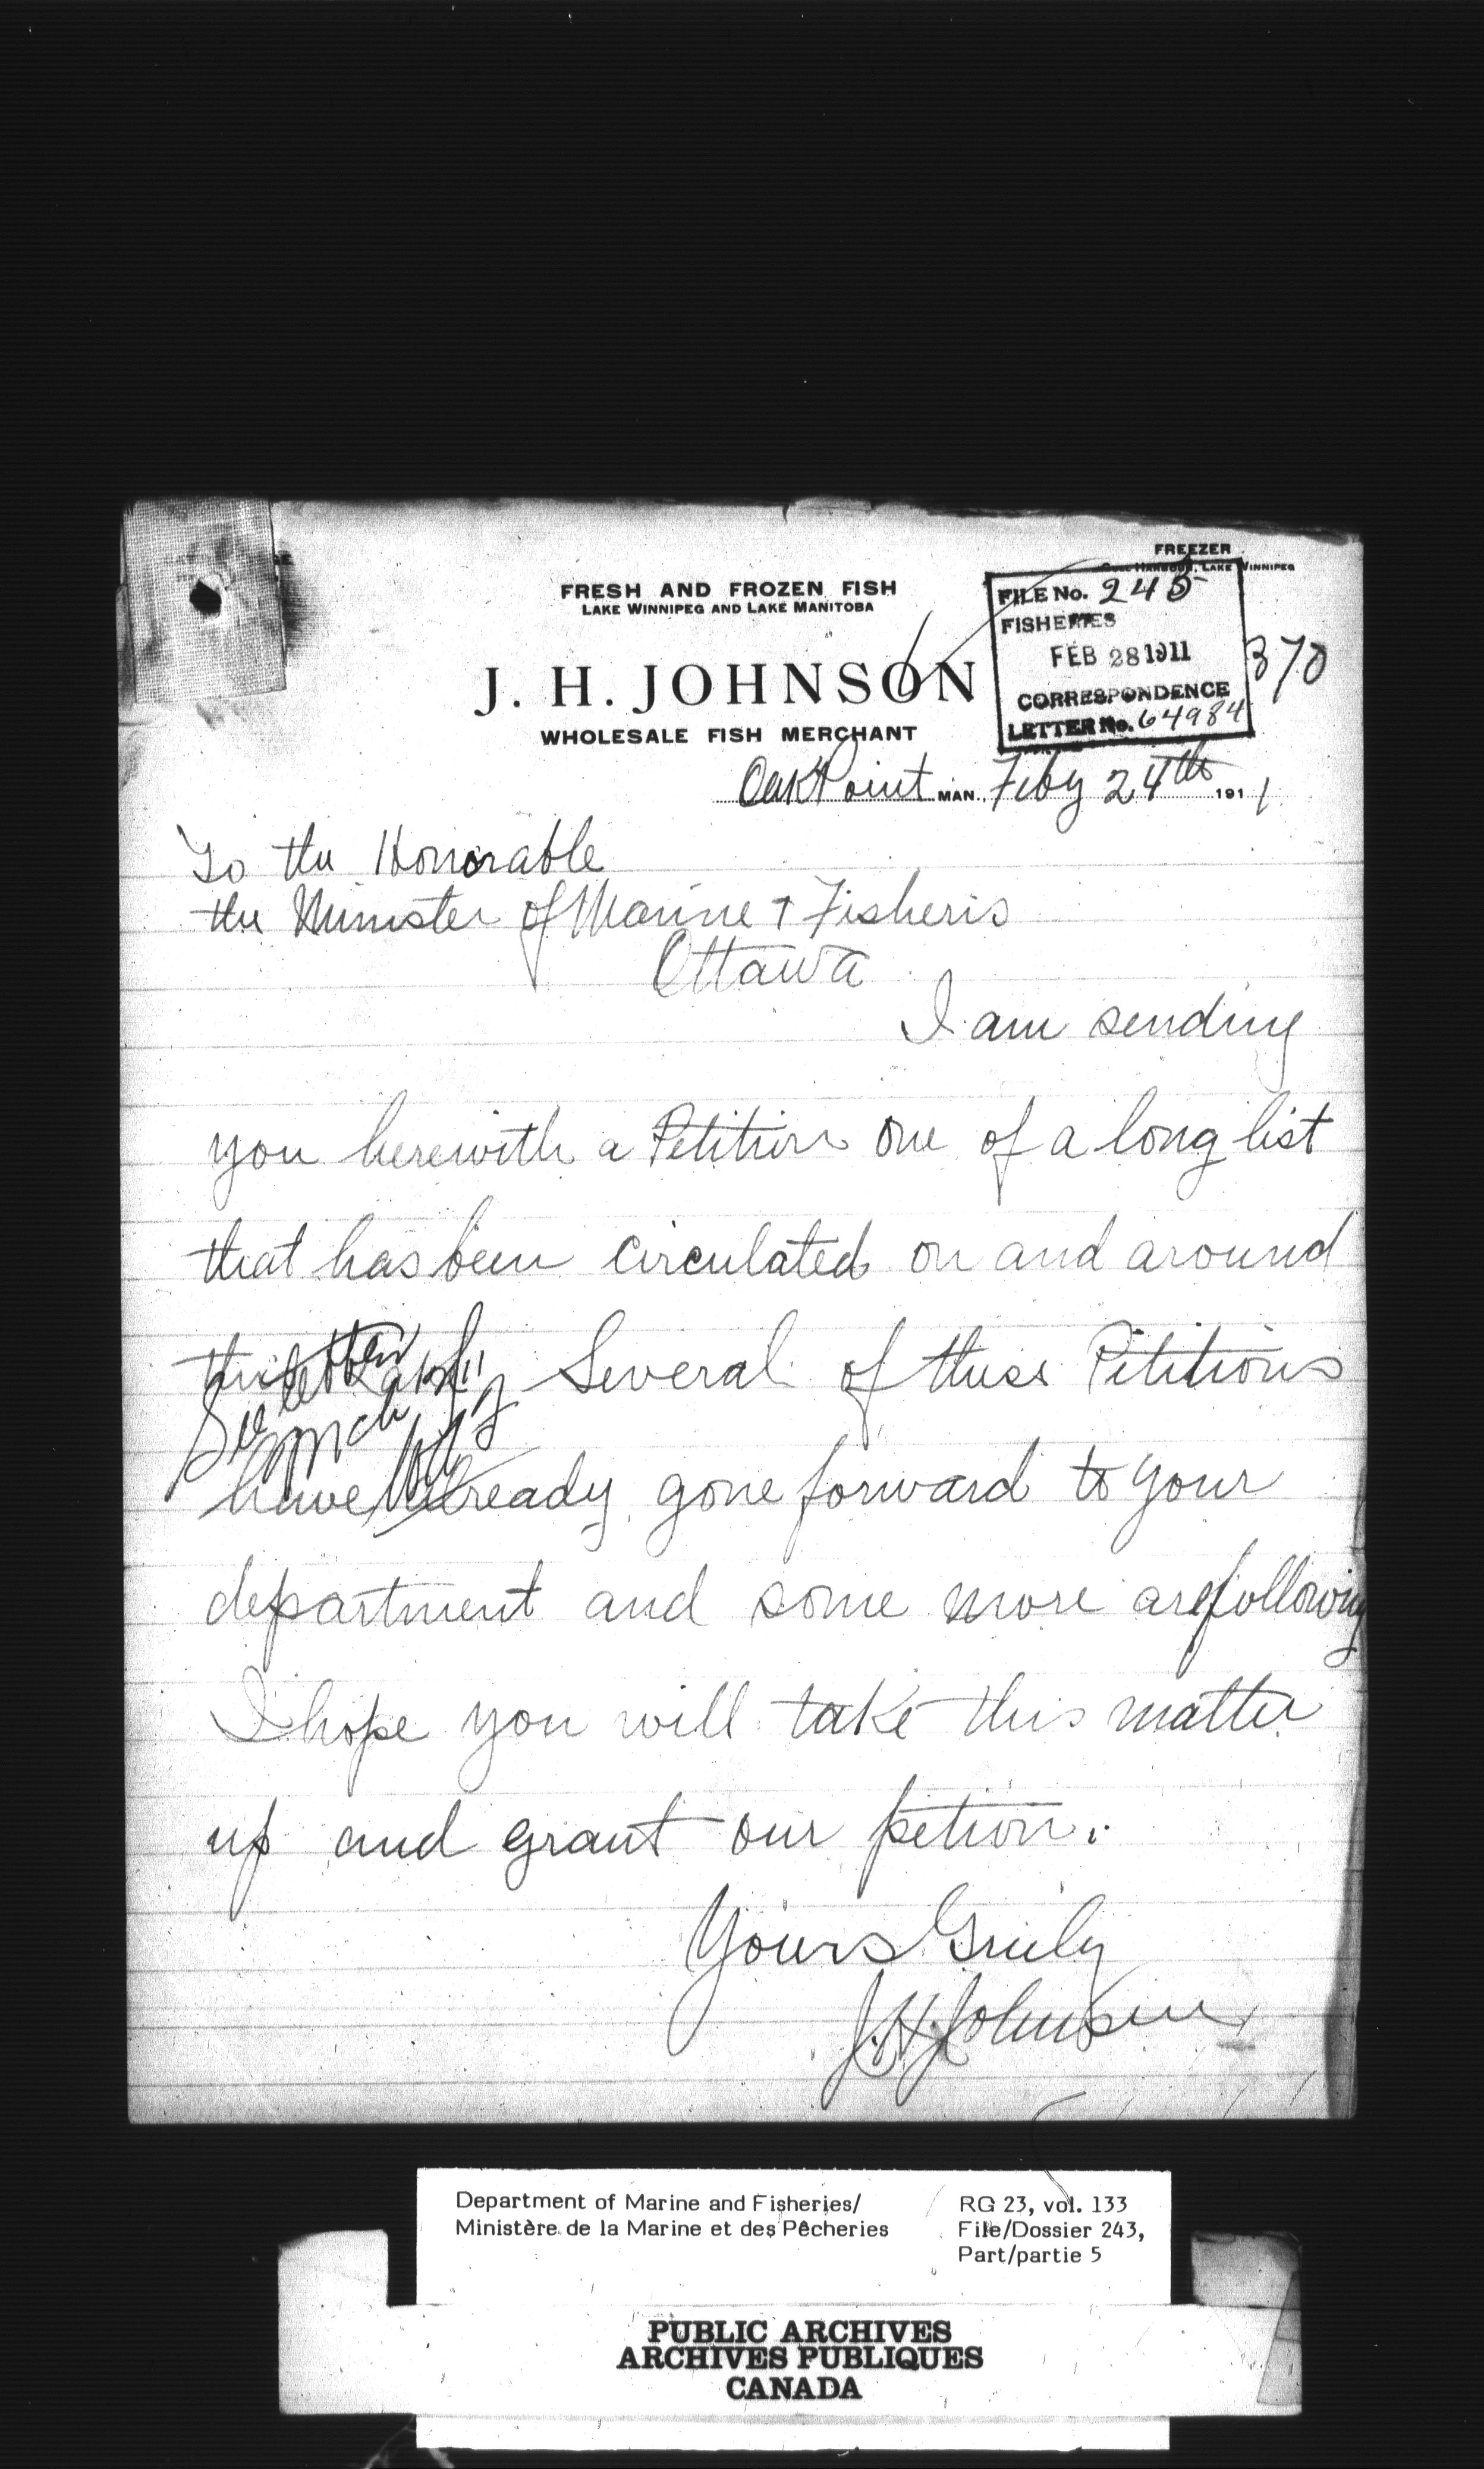 FREEZER
GULL HARBOUR, LAKE WINNIPEG
FRESH AND FROZEN FISH
LAKE WINNIPEG AND LAKE MANITOBA
J. H. JOHNSON
WHOLESALE FISH MERCHANT
FILE No. 245
FISHERIES
FEB 28 1911
CORRESPONDENCE
LETTER No. 64984
370
Oak Point MAN., Feby 24th 1911
To the Honorable
the Minister of Marine & Fisheris
Ottawa
I am sending
you herewith a Petition one of a long list
that has been circulated on and around
this Lake. Several of these Petitions
See letter
have already gone forward to your
department and some more are following
I hope you will take this matter
up and grant our petion.
Yours Truly
J. H. Johnson
Department of Marine and Fisheries/
Ministère de la Marine et des Pêcheries
RG 23, vol. 133
File/Dossier 243,
Part/partie 5
PUBLIC ARCHIVES
ARCHIVES PUBLIQUES
CANADA